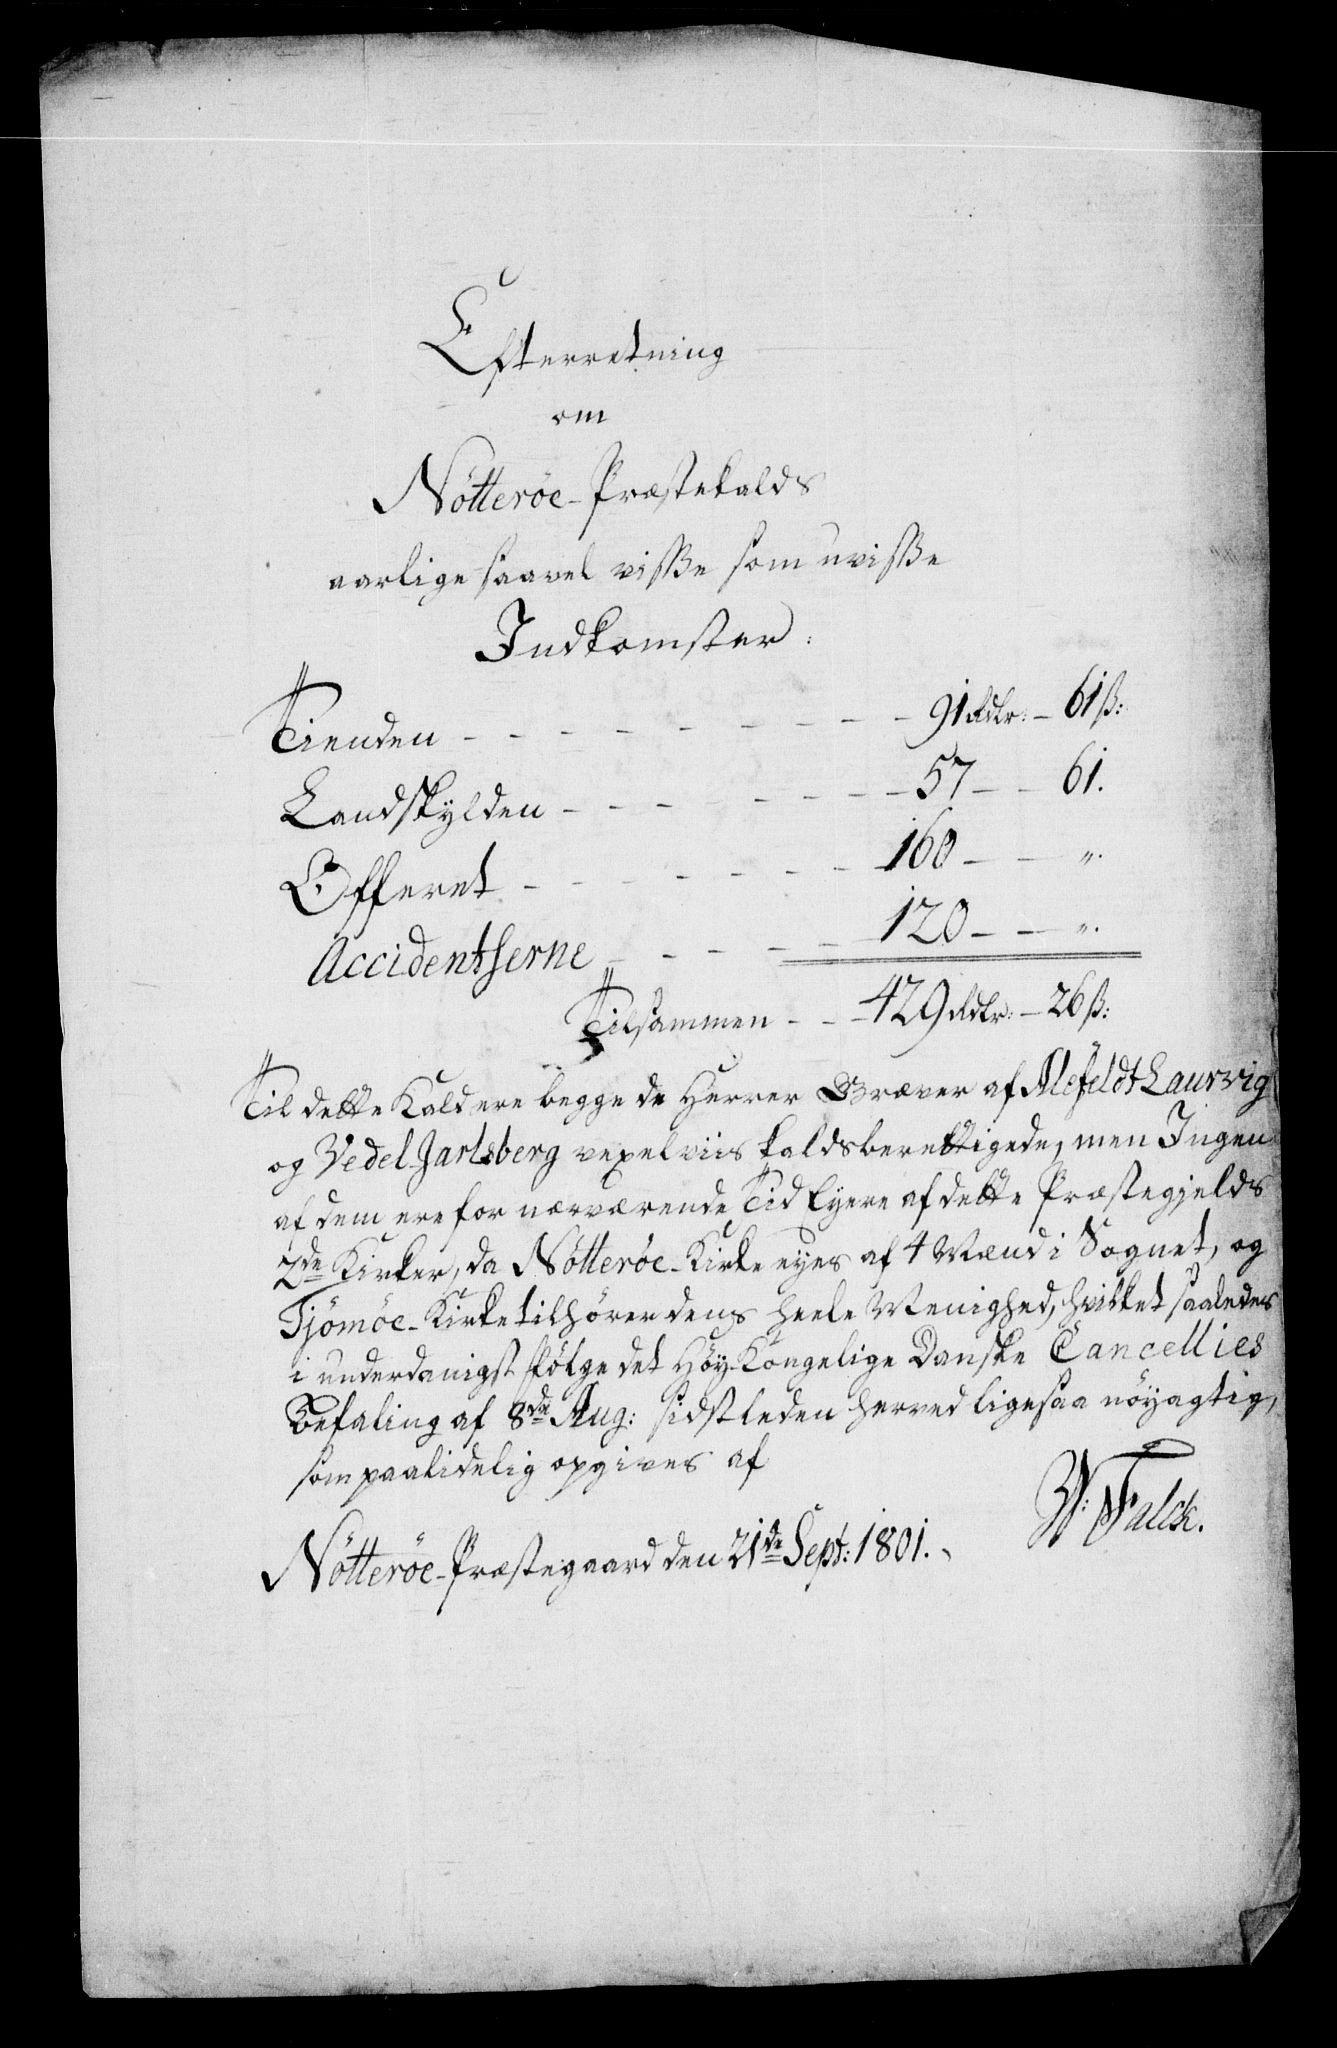 Efterretning
om
Nötteröe-Præstekalds
aarlige saavel visse som uvisse
Indkomster:
Tienden - - - - - - - - - 91 Rdlr: - 61 ß:
Landskylden - - - - - - - - 57 - - 61.
Offeret - - - - - - - - 160 - - ".
Accidentserne - - - - - 120 - - ".
Tilsammen - - 429 Rdlr: - 26 ß:
Til dette Kald ere begge de Herrer Græver af Alefeldt Laurvig
og Vedel-Jarlsberg vexelviis kaldsberettigede, men Ingen
af dem ere for nærværende Tid Eyere af dette Præstegjelds
2de Kirker, da Nötteröe-Kirke eyes af 4 Mænd i Sognet, og
Tjömöe-Kirke tilhörer dens heele Menighed, hvilket saaledes
i underdanigst fölge det Höy-Kongelige Danske Cancellies
Befaling af 8de Aug: sidstleden herved ligesaa nöyagtig,
som paalidelig opgives af
W: Falck.
Nötteröe-Præstegaard den 21de Sept: 1801.